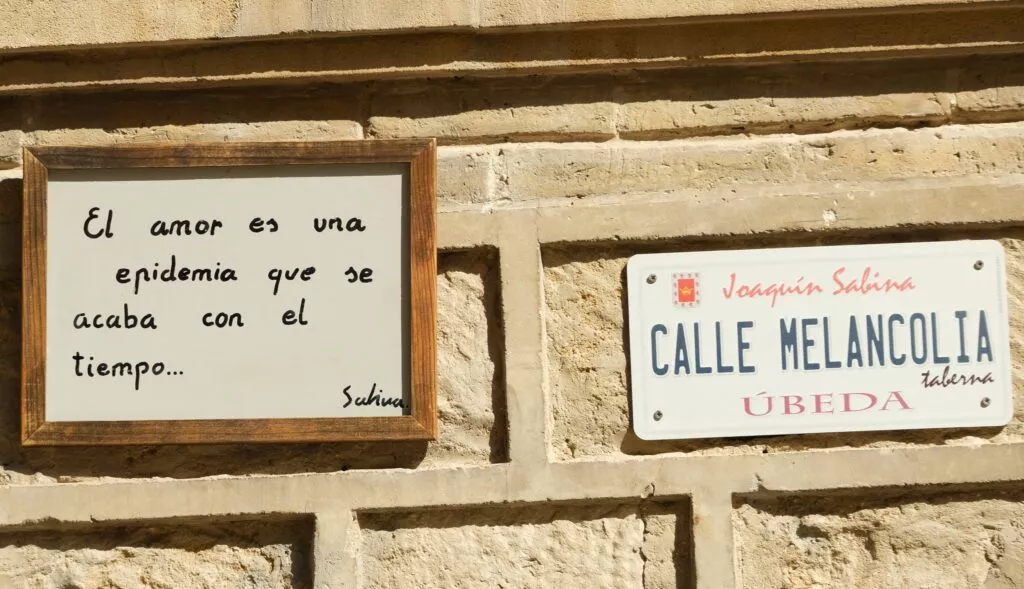 El amor es una
epidemia que se
acaba con el
tiempo...
Sabina.
Joaquín Sabina
CALLE MELANCOLIA
taberna
ÚBEDA